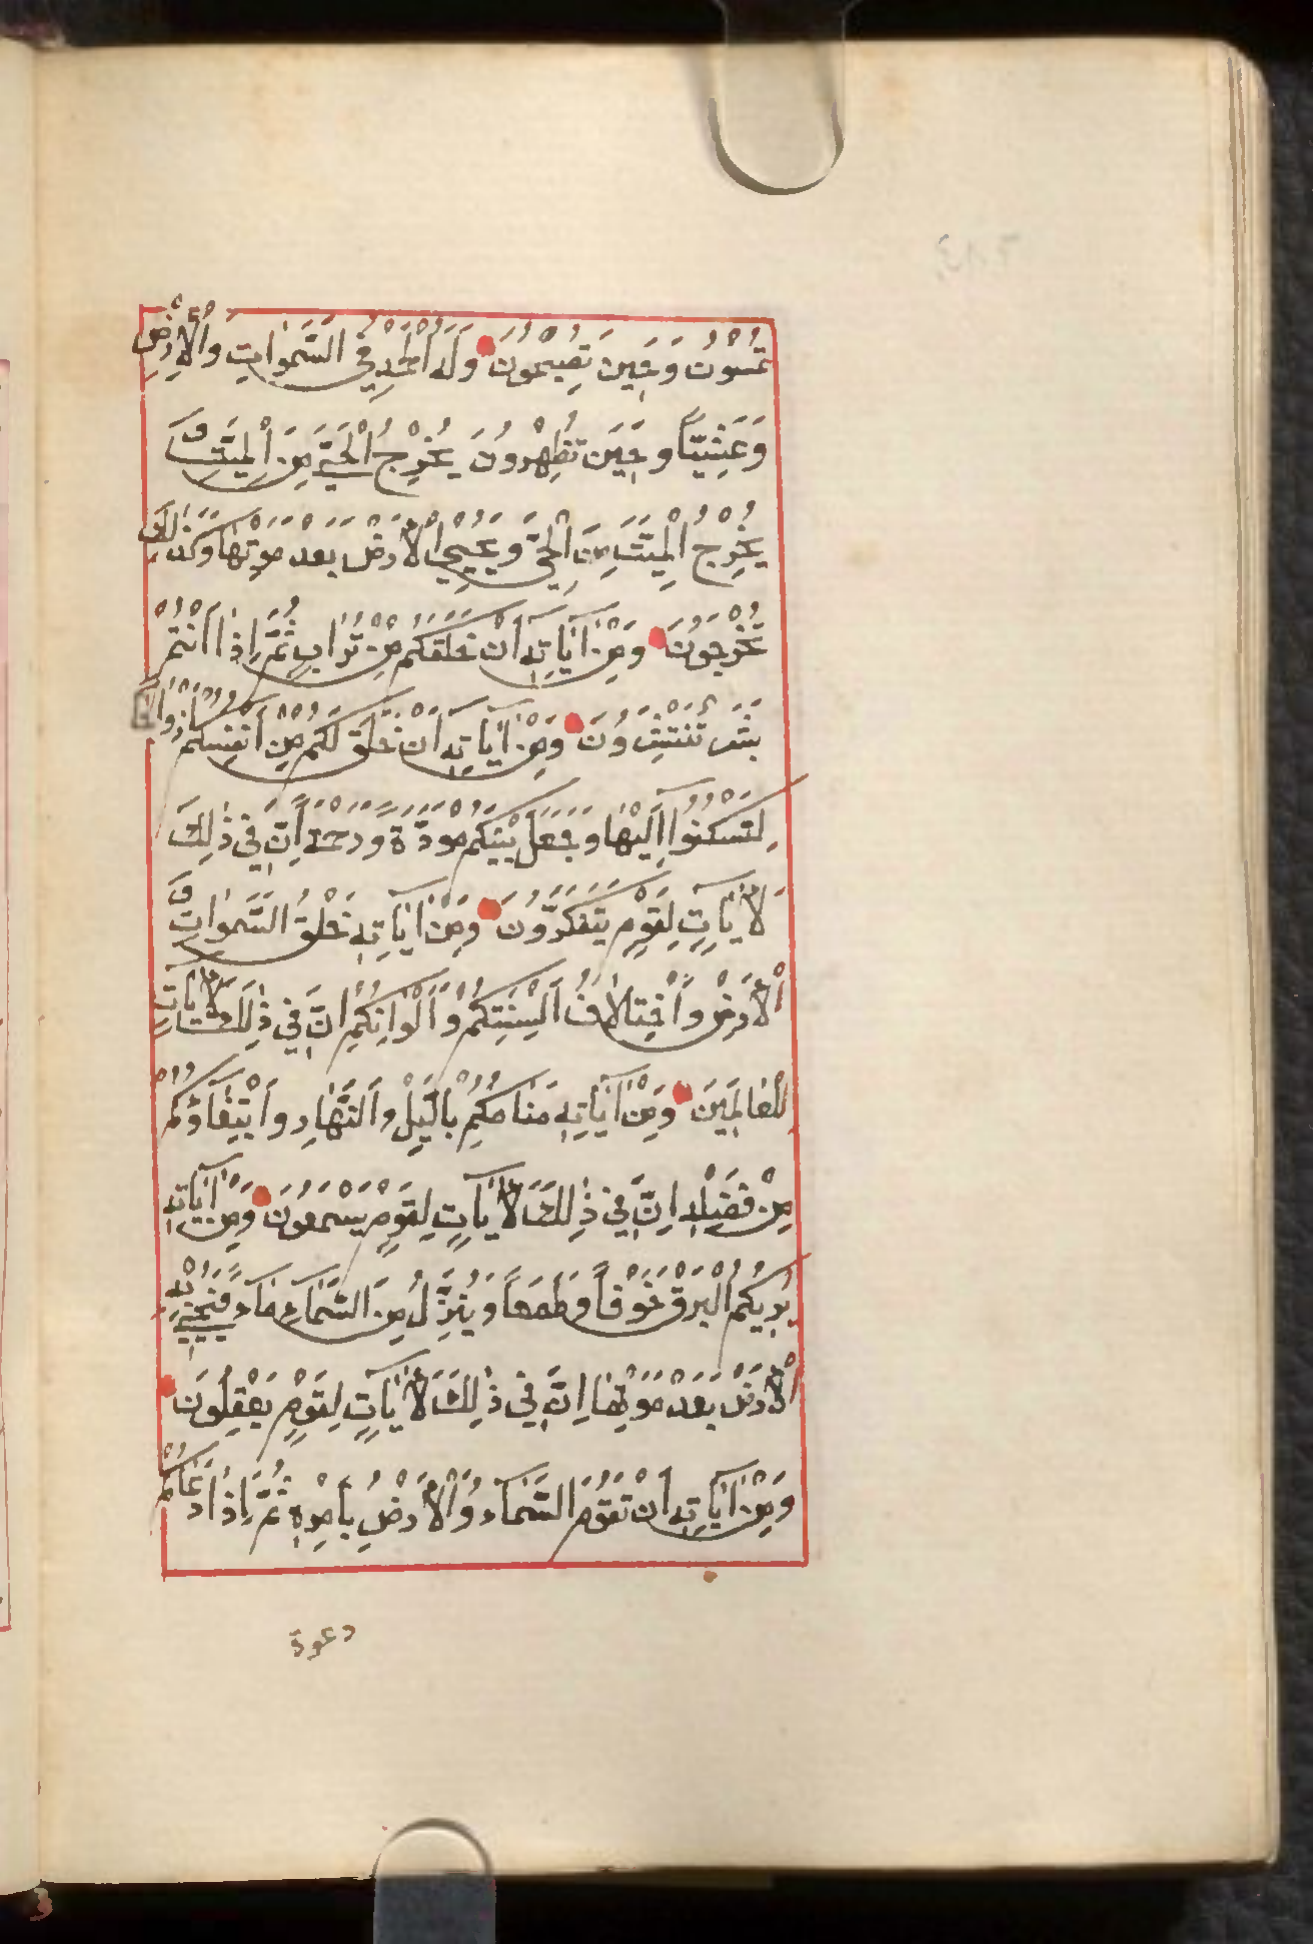 تُمْسُونَ وَحِينَ تُصْبِحُونَ وَلَهُ الْحَمْدُ فِي السَّمٰوَاتِ وَالْأَرْضِ
وَعَشِيًّا وَحِينَ تُظْهِرُونَ يُخْرِجُ الْحَيَّ مِنَ الْمَيِّتِ وَ
يُخْرِجُ الْمَيِّتَ مِنَ الْحَيِّ وَيُحْيِي الْأَرْضَ بَعْدَ مَوْتِهَا وَكَذٰلِكَ
تُخْرَجُونَ وَمِنْ اٰيَاتِهِ أَنْ خَلَقَكُمْ مِنْ تُرَابٍ ثُمَّ إِذَا أَنْتُمْ
بَشَرٌ تَنْتَشِرُونَ وَمِنْ اٰيَاتِهِ أَنْ خَلَقَ لَكُمْ مِنْ أَنْفُسِكُمْ أَزْوَاجًا
لِتَسْكُنُوا إِلَيْهَا وَجَعَلَ بَيْنَكُمْ مَوَدَّةً وَرَحْمَةً إِنَّ فِي ذٰلِكَ
لَأٰيَاتٍ لِقَوْمٍ يَتَفَكَّرُونَ وَمِنْ اٰيَاتِهِ خَلْقُ السَّمٰوَاتِ وَ
الْأَرْضِ وَاخْتِلَافُ أَلْسِنَتِكُمْ وَأَلْوَانِكُمْ إِنَّ فِي ذٰلِكَ لَأٰيَاتٍ
لِلْعَالَمِينَ وَمِنْ اٰيَاتِهِ مَنَامُكُمْ بِاللَّيْلِ وَالنَّهَارِ وَابْتِغَاؤُكُمْ
مِنْ فَضْلِهِ إِنَّ فِي ذٰلِكَ لَأٰيَاتٍ لِقَوْمٍ يَسْمَعُونَ وَمِنْ اٰيَاتِهِ
يُرِيكُمُ الْبَرْقَ خَوْفًا وَطَمَعًا وَيُنَزِّلُ مِنَ السَّمَاءِ مَاءً فَيُحْيِي بِهِ
الْأَرْضَ بَعْدَ مَوْتِهَا إِنَّ فِي ذٰلِكَ لَأٰيَاتٍ لِقَوْمٍ يَعْقِلُونَ
وَمِنْ اٰيَاتِهِ أَنْ تَقُومَ السَّمَاءُ وَالْأَرْضُ بِأَمْرِهِ ثُمَّ إِذَا دَعَاكُمْ
دعوة